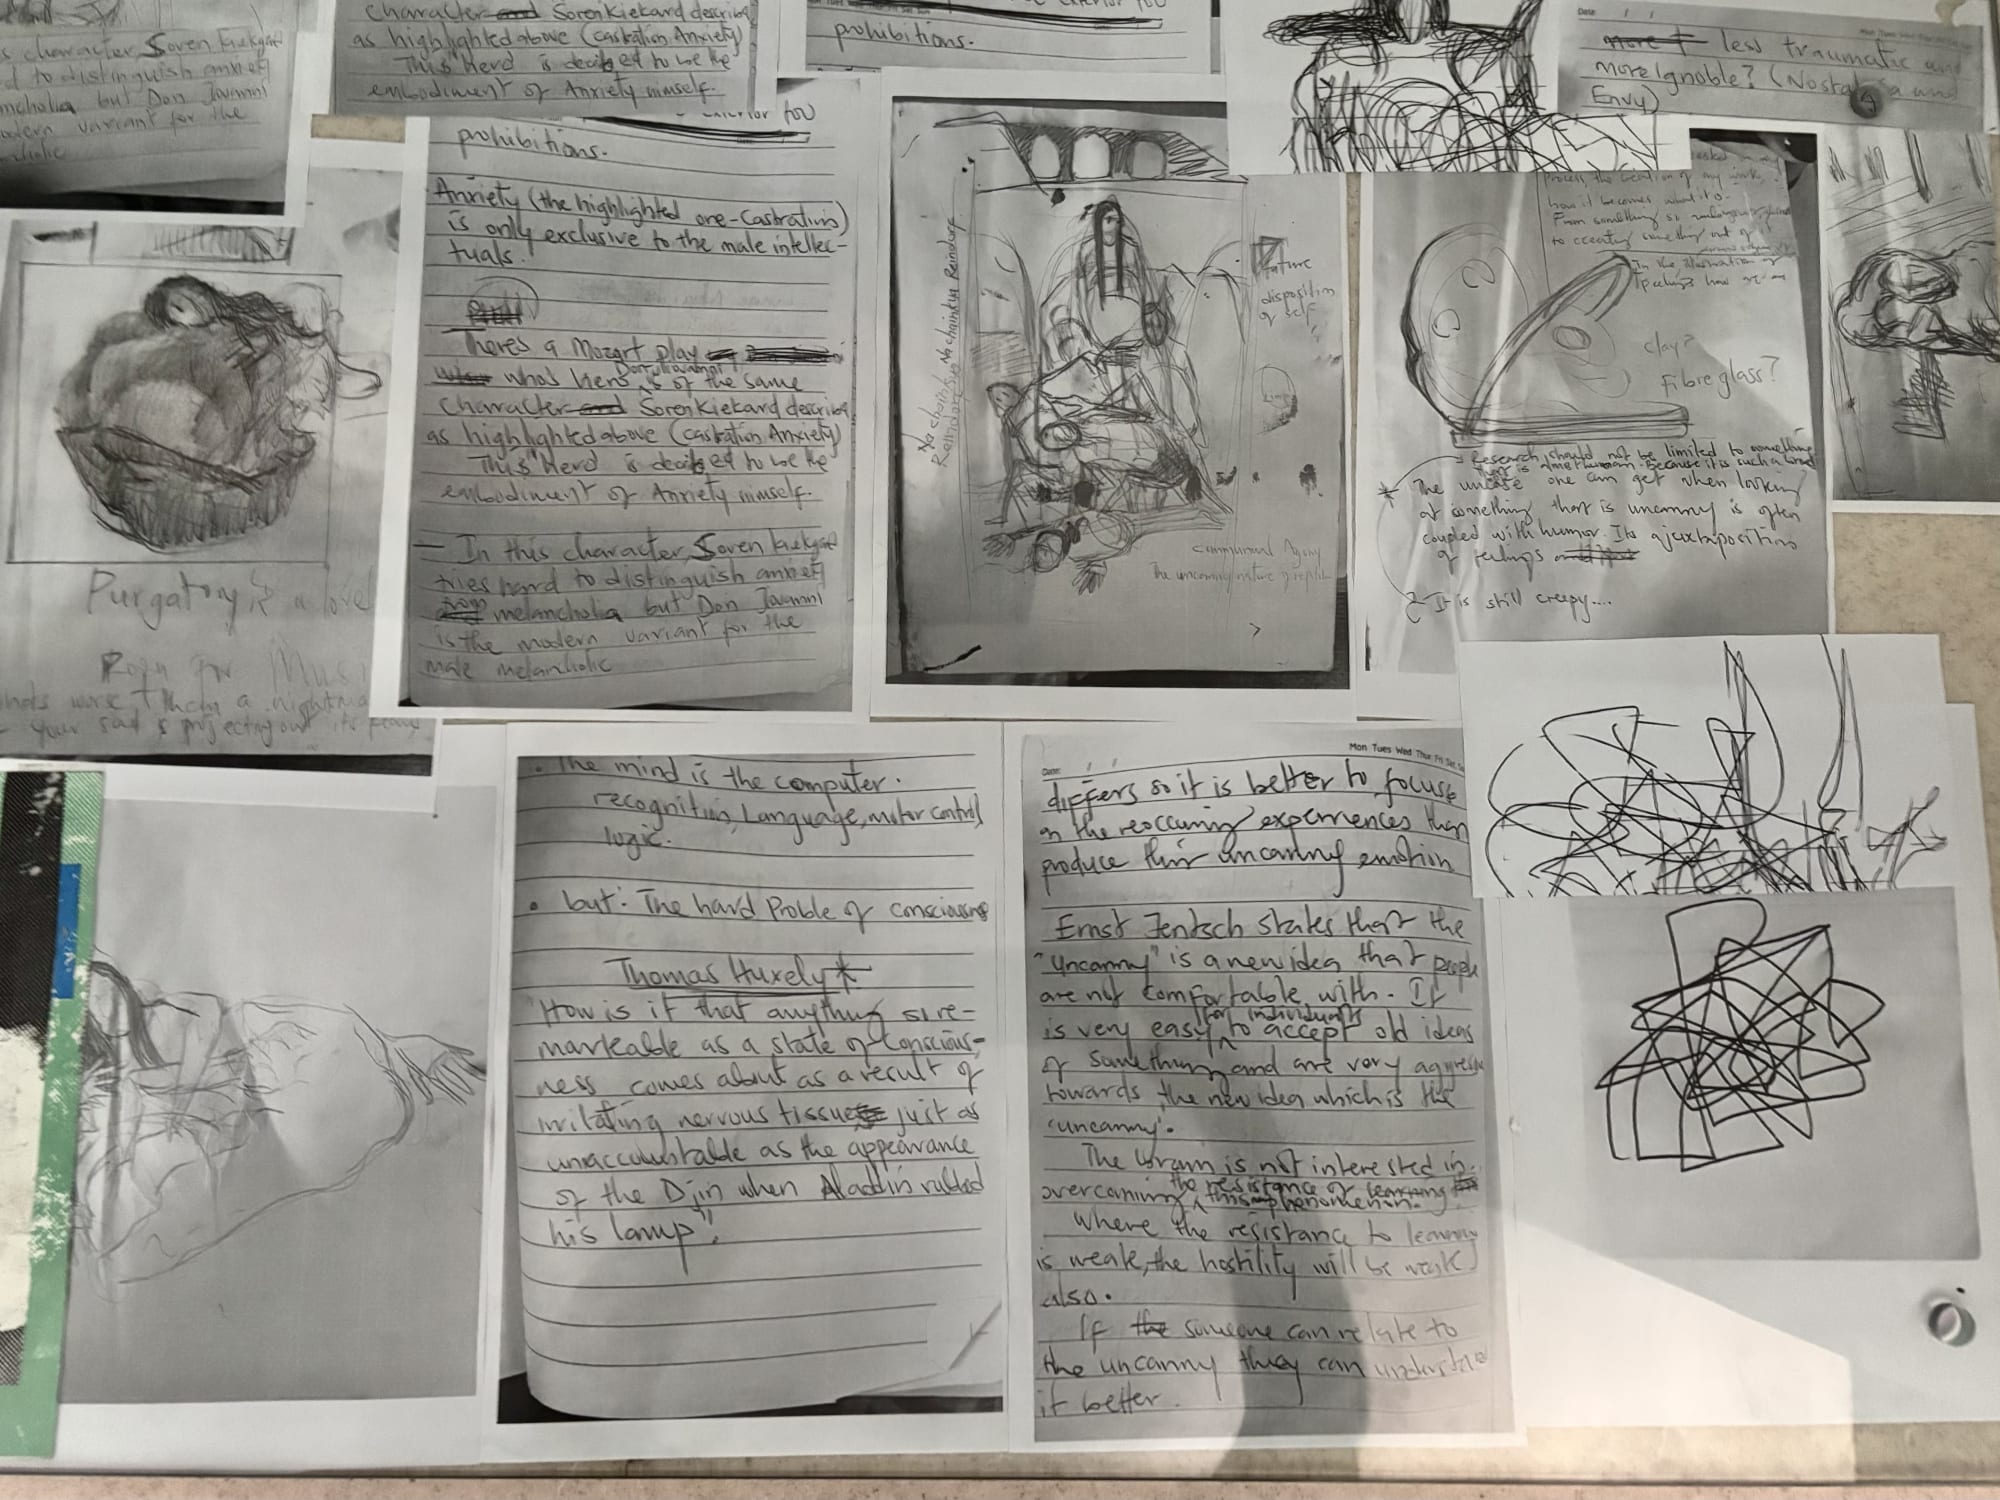 s character, Soren Kiekga
d to distinguish anxiet
melancholia but Don Iovanni
odern variant for the
ancholic
character and Soren Kiekard describe
as highlighted above (castration Anxiety)
This "hero" is decided to be the
embodiment of Anxiety himself.
prohibitions.
Date: / /
less traumatic and
more Ignoble? (Nostal a and
Envy)
exterior foo
prohibitions.
Anxiety (the highlighted one-Castration)
is only exclusive to the male intellec-
tuals.
There's a Mozart play
who's hero Don Iuvanni is of the same
character and Soren Kiekard describe
as highlighted above (castration Anxiety)
This "hero" is decided to be the
embodiment of Anxiety himself.
— In this character, Soren Kiekga
tries hard to distinguish anxiet
from melancholia but Don Iovanni
is the modern variant for the
male melancholic
Purgatory is a love
your sad s projecting out its
future
disposition
of self
communal Agony
The uncanny nature of
process, the creation of my work,
how it becomes what it is.
From something so
to creating something out of
In the illustration of
clay?
Fibreglass?
Research should not be limited to something
that is almost human. Because it is such a broad
* The unease one can get when looking
at something that is uncanny is often
coupled with humor. Its a juxtaposition
of feelings
It is still creepy....
. The mind is the computer.
recognition, Language, motor control,
logic.
. but: The hard Proble of consciousness
Thomas Huxely*
"How is it that anything so re-
markeable as a state of conscious-
ness comes about as a result of
irritating nervous tissue just as
unaccountable as the appearance
of the Djin when Aladdin rubbed
his lamp".
Mon Tues Wed Thur Fri Sat Su
Date: / /
differs so it is better to focus
on the reoccuring experiences that
produce this uncanny emotion
Ernst Jentsch states that the
"Uncanny" is a new idea that people
are not comfortable with. It
is very easy for individuals to accept old ideas
of something and are very aggress
towards the new idea which is the
'uncanny'.
The brain is not interested in
overcoming the resistance of learning
this phenomenon.
Where the resistance to learning
is weak, the hostility will be weak
also.
If the someone can relate to
the uncanny they can understand
it better.